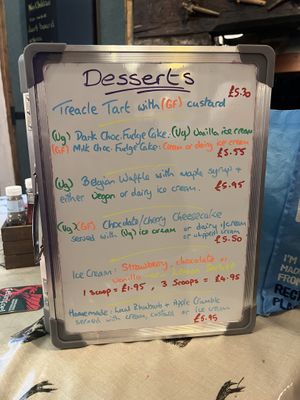 Desserts
£5.30
Treacle Tart with (GF) custard
(Vg) Dark Choc. Fudge Cake. (Vg) Vanilla ice cream
(GF) Milk Choc. Fudge Cake: Cream or dairy ice cream
£5.55
(Vg) Belgian Waffle with maple syrup +
either vegan or dairy ice cream. £5.95
(Vg) (GF) Chocolate/Cherry Cheesecake
served with (Vg) ice cream or dairy icecream
or whipped cream
£5.50
Ice Cream: Strawberry, chocolate or
vanilla
1 scoop = £1.95, 3 Scoops = £4.95
Homemade: Local Rhubarb + Apple Crumble
served with cream, custard or ice cream
£5.95
I'M
MADE
FROM